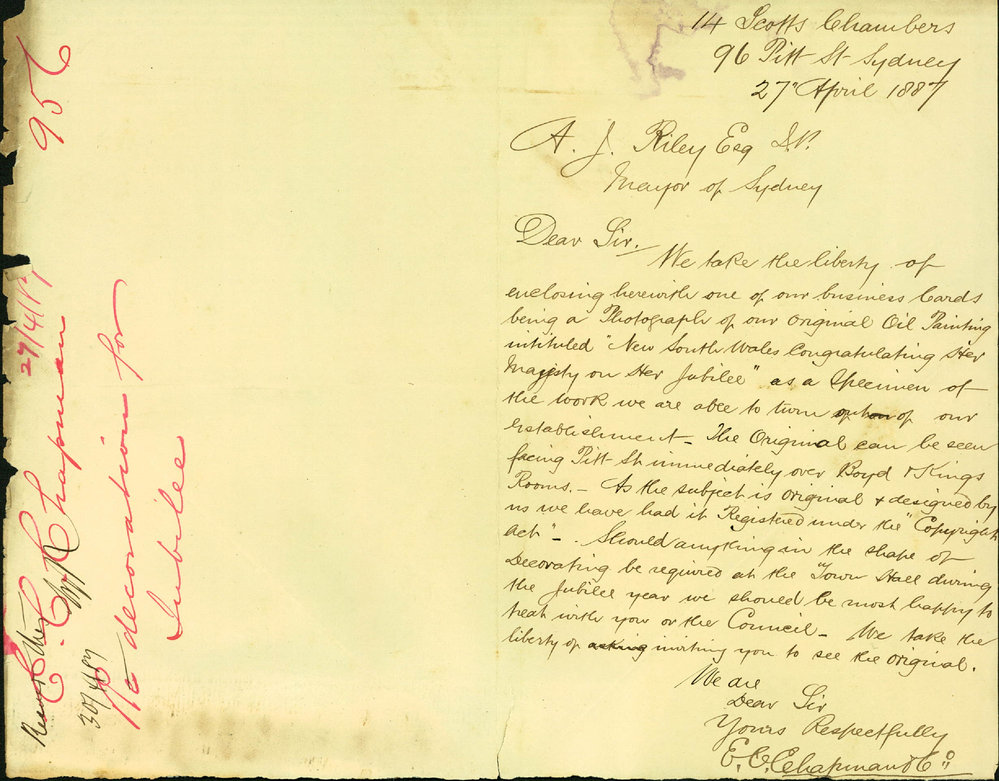 14 Scotts Chambers
96 Pitt St Sydney
27" April 1887
A. J. Riley Esq J.P.
Mayor of Sydney
Dear Sir.
We take the liberty of
enclosing herewith one of our business Cards
being a Photograph of our Original Oil Painting
intituled "New South Wales Congratulating Her
Majesty on Her Jubilee" as a Specimen of
the work we are able to turn out of our
Establishment - The Original can be seen
facing Pitt St immediately over Boyd & Kings
Rooms. - As the subject is original & designed by
us we have had it Registered under the "Copyright
Act" - Should anything in the shape of
Decorating be required at the "Town Hall during
the Jubilee year we should be most happy to
treat with you or the Council - We take the
liberty of asking inviting you to see the original.
We are
Dear Sir
Yours Respectfully
E. C. Chapman & Co
956
27/4/87
E. C. Chapman
Re decoration for
Jubilee
30/4/87